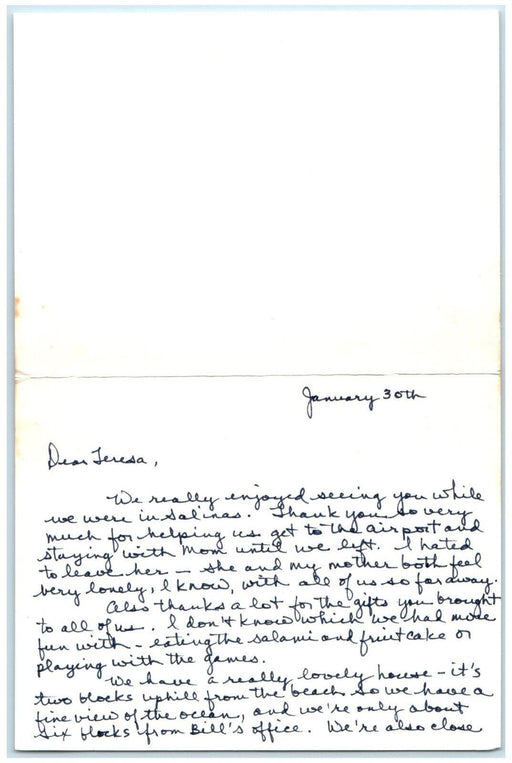 January 30th
Dear Teresa,
We really enjoyed seeing you while
we were in Salinas. Thank you so very
much for helping us get to the airport and
staying with Mom until we left. I hated
to leave her — she and my mother both feel
very lonely, I know, with all of us so far away.
Also thanks a lot for the gifts you brought
to all of us. I don't know which we had more
fun with - eating the salami and fruitcake or
playing with the games.
We have a really lovely house - it's
two blocks uphill from the beach so we have a
fine view of the ocean, and we're only about
six blocks from Bill's office. We're also close